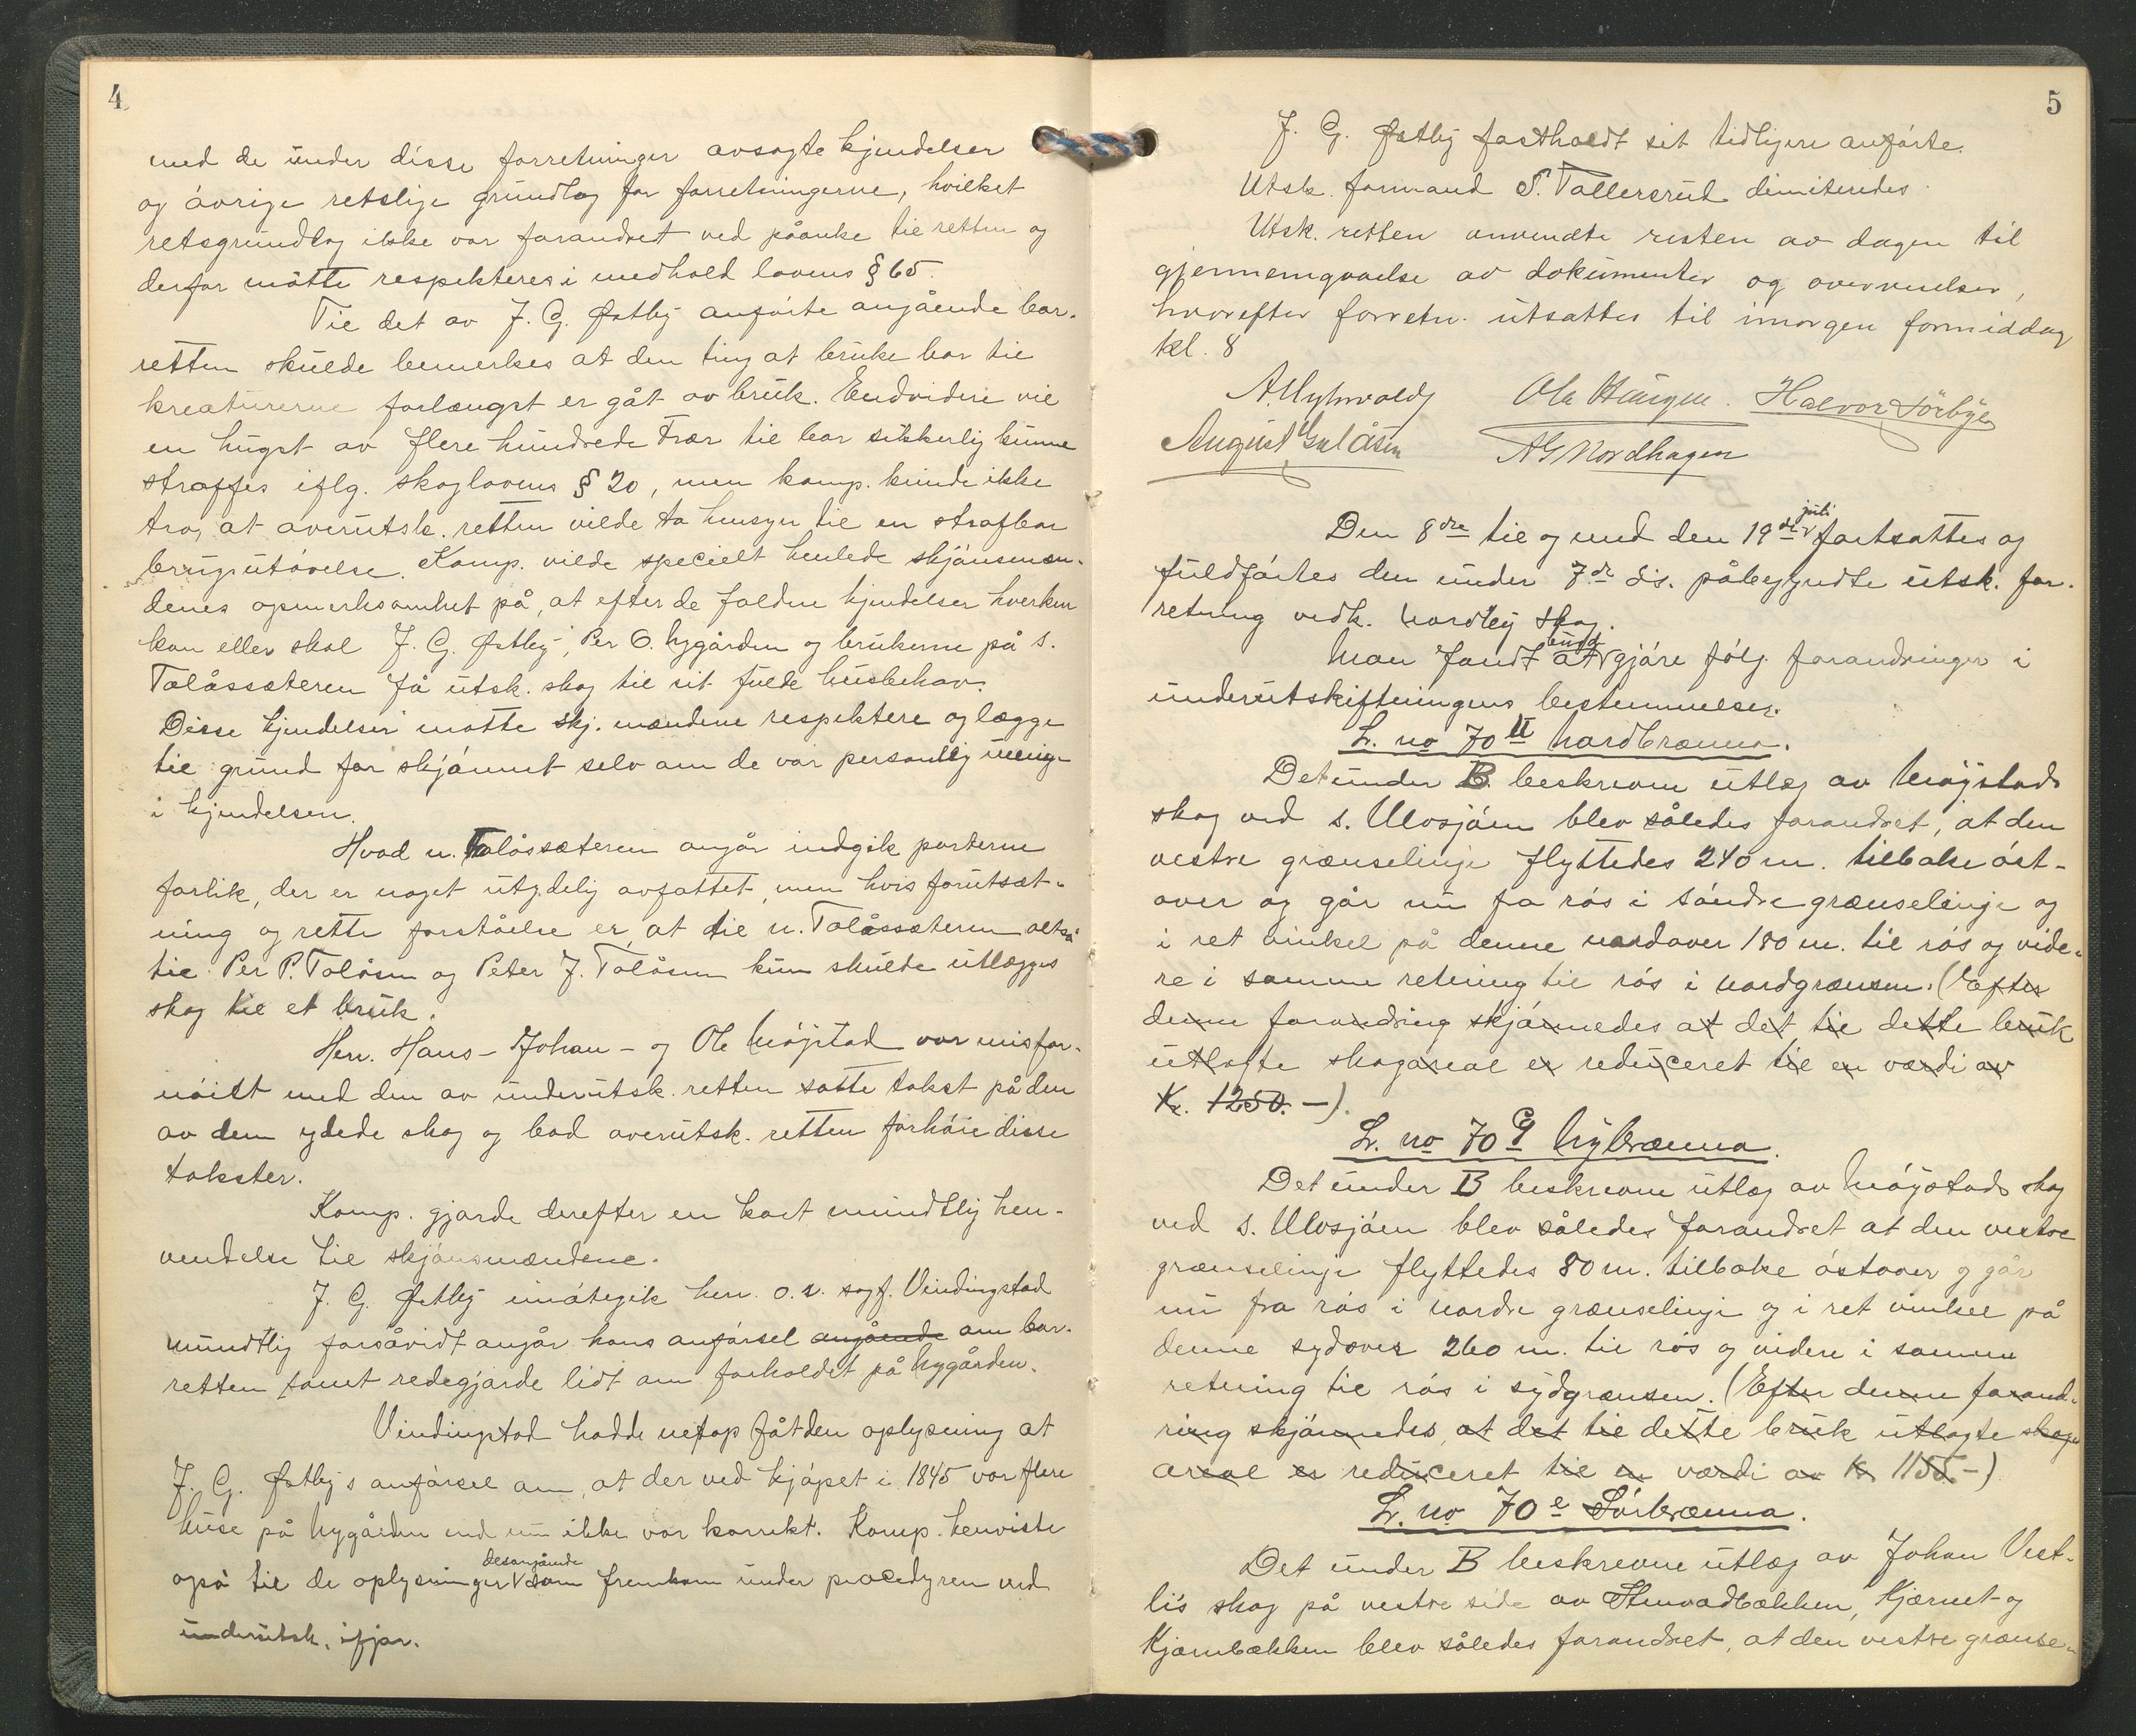 4
med de under disse forretninger avsagte kjendelser
og øvrige retslige grundlag for forretningerne, hvilket
retsgrundlag ikke var forandret ved påanke til retten og
derfor måtte respekteres i medhold lovens § 65.
Til det av J. G. Østby anførte angående bar-
retten skulde bemerkes at den ting at bruke bar til
kreaturerne forlængst er gåt av bruk. Endvidere vil
en hugst av flere hundrede trær til bar sikkerlig kunne
straffes iflg. skoglovens § 20, men komp. kunde ikke
tro, at overutsk. retten vilde ta hensyn til en strafbar
bruksutøvelse. Komp. vilde specielt henlede skjønsmæn-
denes opmerksomhet på, at efter de faldne kjendelser hverken
kan eller skal J. G. Østby, Per O. Nygården og brukerne på s.
Talåssæteren få utsk. skog til sit fulde husbehov.
Disse kjendelser måtte skj. mændene respektere og lægge
til grund for skjønnet selv om de var personlig uenig
i kjendelsen.
Hvad n. Talåssæteren angår indgik parterne
forlik, der er noget utydelig avfattet, men hvis forutsæt-
ning og rette forståelse er, at til n. Talåssæteren altså
til Per P. Talåsen og Peter J. Talåsen kun skulde utlægges
skog til et bruk.
Hrr. Hans- Johan- og Ole Møystad var misfor-
nøiet med den av underutsk. retten satte takst på den
av dem ydede skog og bad overutsk. retten forhøie disse
takster.
Komp. gjorde derefter en kort mundtlig hen-
vendelse til skjønsmændene.
J. G. Østby imøtegik hrr. o.r. sagf. Vindingstad
mundtlig forsåvidt angår hans anførsel angående om bar-
retten samt redegjorde lidt om forholdet på Nygården.
Vindingstad hadde netop fåt den oplysning at
J. G. Østbys anførsel om, at der ved kjøpet i 1845 var flere
huse på Nygården end nu ikke var korrekt. Komp. henviste
også til de oplysninger desangående som fremkom under procedyren ved
underutsk. ifjor.
5
J. G. Østby fastholdt sit tidligere anførte.
Utsk. formand P. Tallersrud dimiteredes.
Utsk. retten anvendte resten av dagen til
gjennemgåelse av dokumenter og overveielser,
hvorefter forretn. utsattes til imorgen formiddag
kl. 8
A. Myhrvold Ole Haugen. Halvor Sørbye
August Gulåsen AG Nordhagen
Den 8de til og med den 19de juli fortsattes og
fuldførtes den under 7de ds. påbegyndte utsk. for-
retning vedk. Nordby skog.
Man fandt at burde gjøre følg. forandringer i
underutskiftningens bestemmelser.
L. no 70 II Nordbrænna.
Det under B. beskrevne utlæg av Møystads
skog ved s. Ulvsjøen blev således forandret, at den
vestre grænselinje flyttedes 240 m. tilbake øst-
over og går nu fra røs i søndre grænselinje og
i ret vinkel på denne nordover 180 m. til røs og vide-
re i samme retning til røs i nordgrænsen. (Efter
denne forandring skjønnedes at det til dette bruk
utlagte skogareal er reduceret til en værdi av
Kr. 1250.-).
L. no 70 G Nybrænna.
Det under B beskrevne utlæg av Møystads skog
ved s. Ulvsjøen blev således forandret at den vestre
grænselinje flyttedes 80 m. tilbake østover og går
nu fra røs i nordre grænselinje og i ret vinkel på
denne sydover 260 m. til røs og videre i samme
retning til røs i sydgrænsen. (Efter denne forand-
ring skjønnedes, at det til dette bruk utlagte skog-
areal er reduceret til en værdi av Kr 1155.-)
L. no 70 e Sørbrænna.
Det under B beskrevne utlæg av Johan Vest-
lis skog på vestre side av Stenvadbækken, Kjernet- og
Kjernbækken blev således forandret, at den vestre grænse-